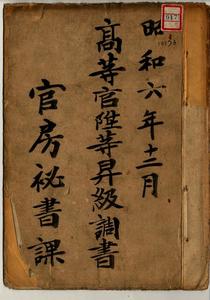 昭和六年十二月
高等官陞等昇級調書
官房祕書課